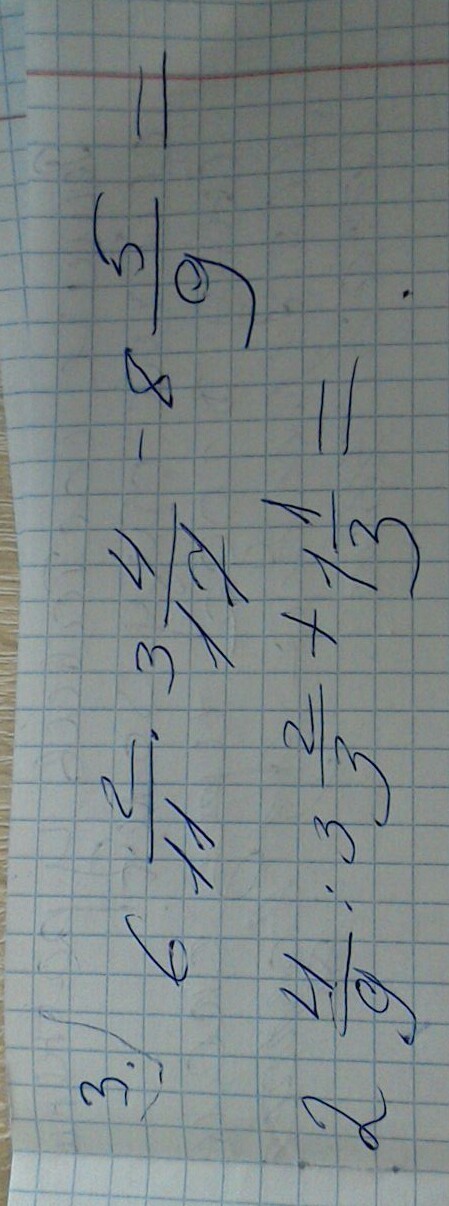 3.) 6 2/11 · 3 4/17 - 8 5/9 =
2 4/9 : 3 2/3 + 1 1/3 =